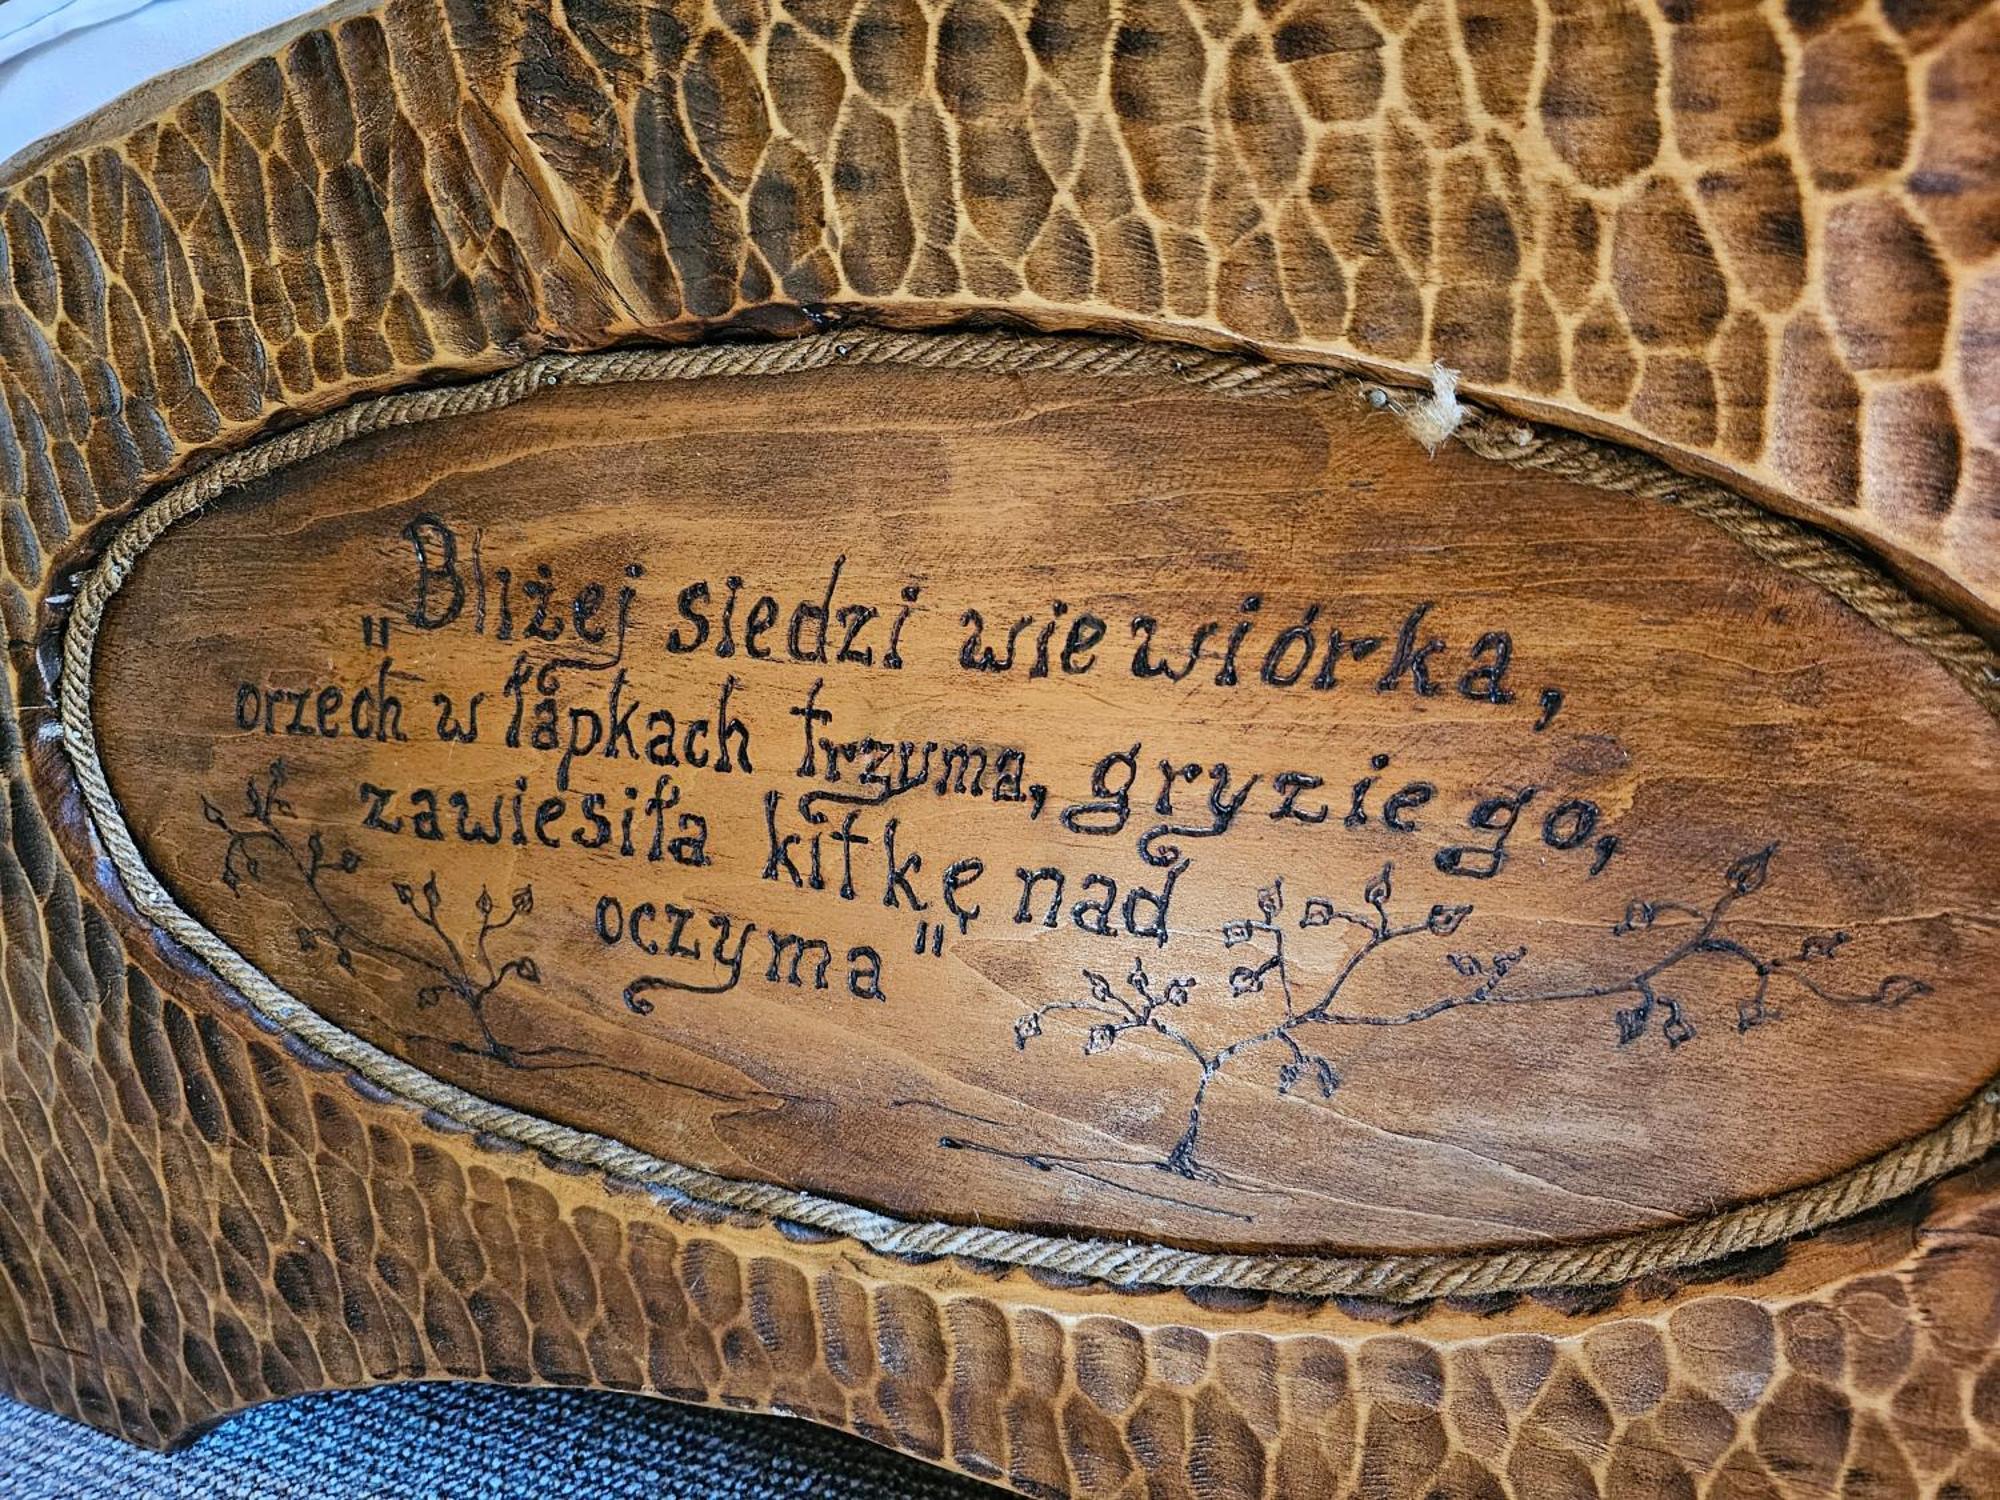 „Bliżej siedzi wiewiórka,
orzech w łapkach trzyma, gryzie go,
zawiesiła kitkę nad
oczyma"